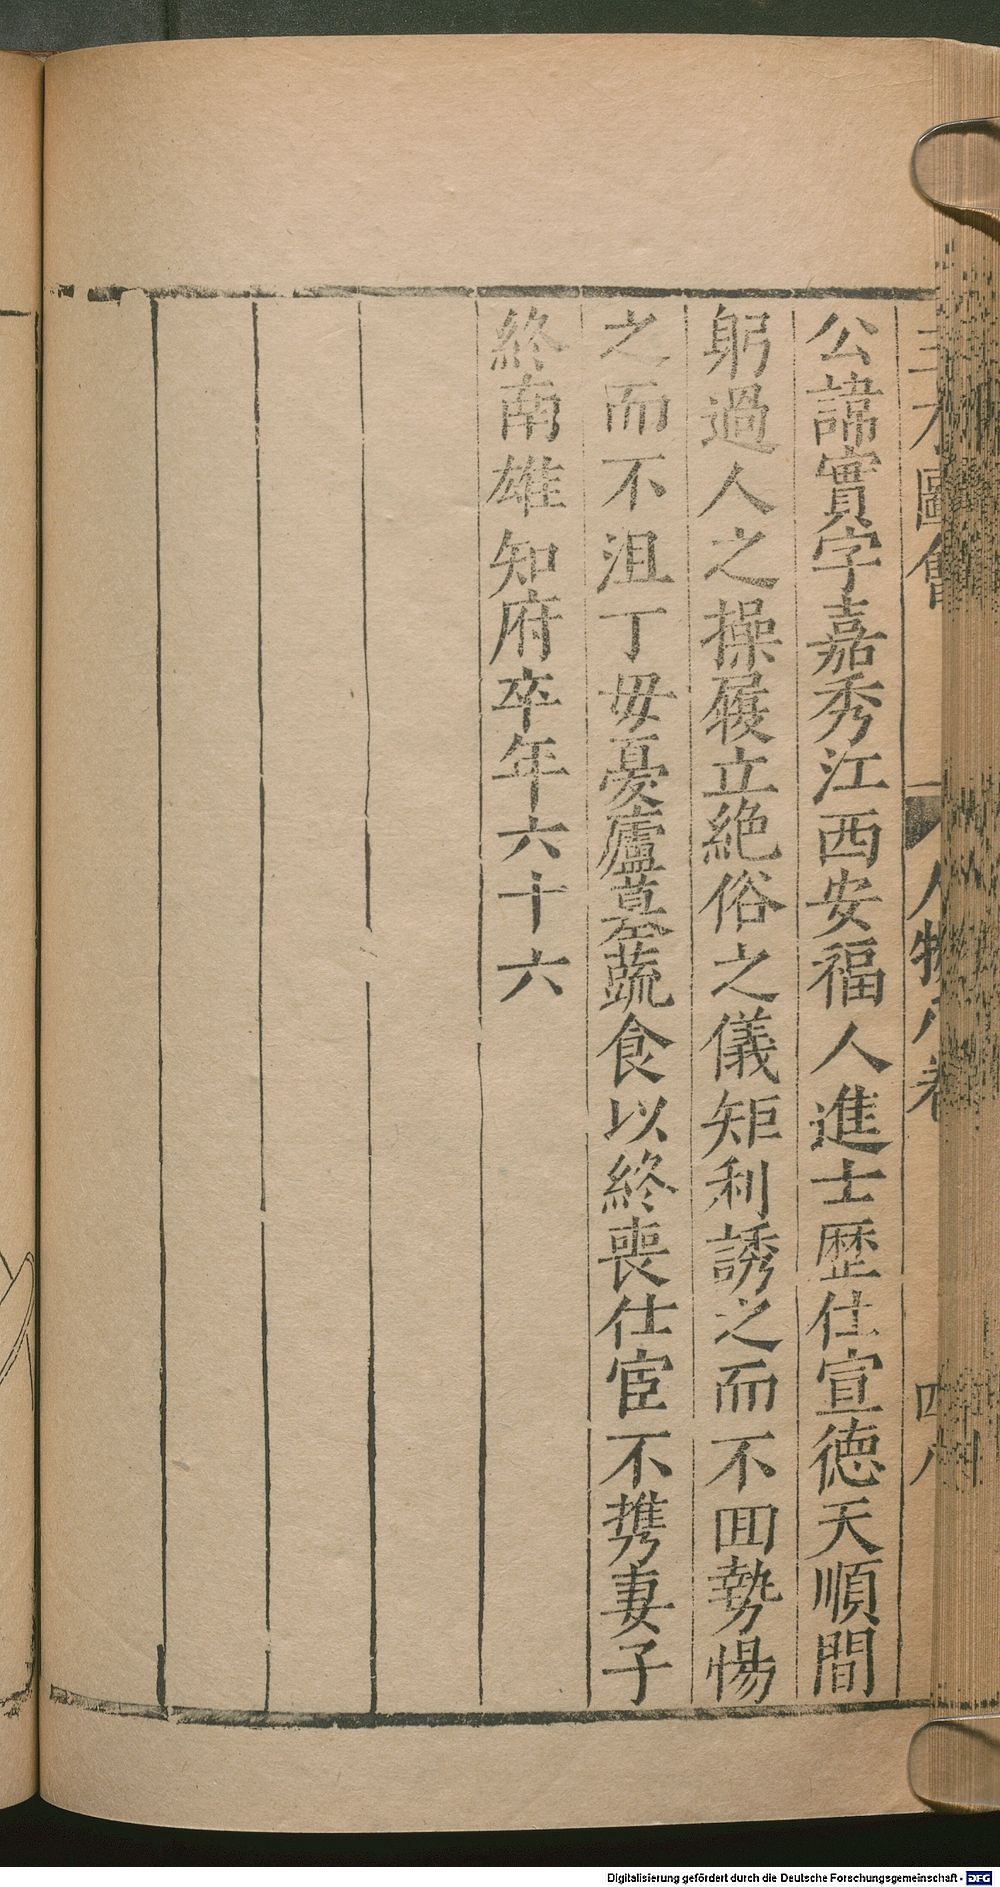 三才圖會 人物八卷 四八
公諱實字嘉秀江西安福人進士歷仕宣德天順間
躬過人之操履立絕俗之儀矩利誘之而不回勢惕
之而不沮丁毋憂廬墓蔬食以終喪仕宦不携妻子
終南雄知府卒年六十六
Digitalisierung gefördert durch die Deutsche Forschungsgemeinschaft - DFG